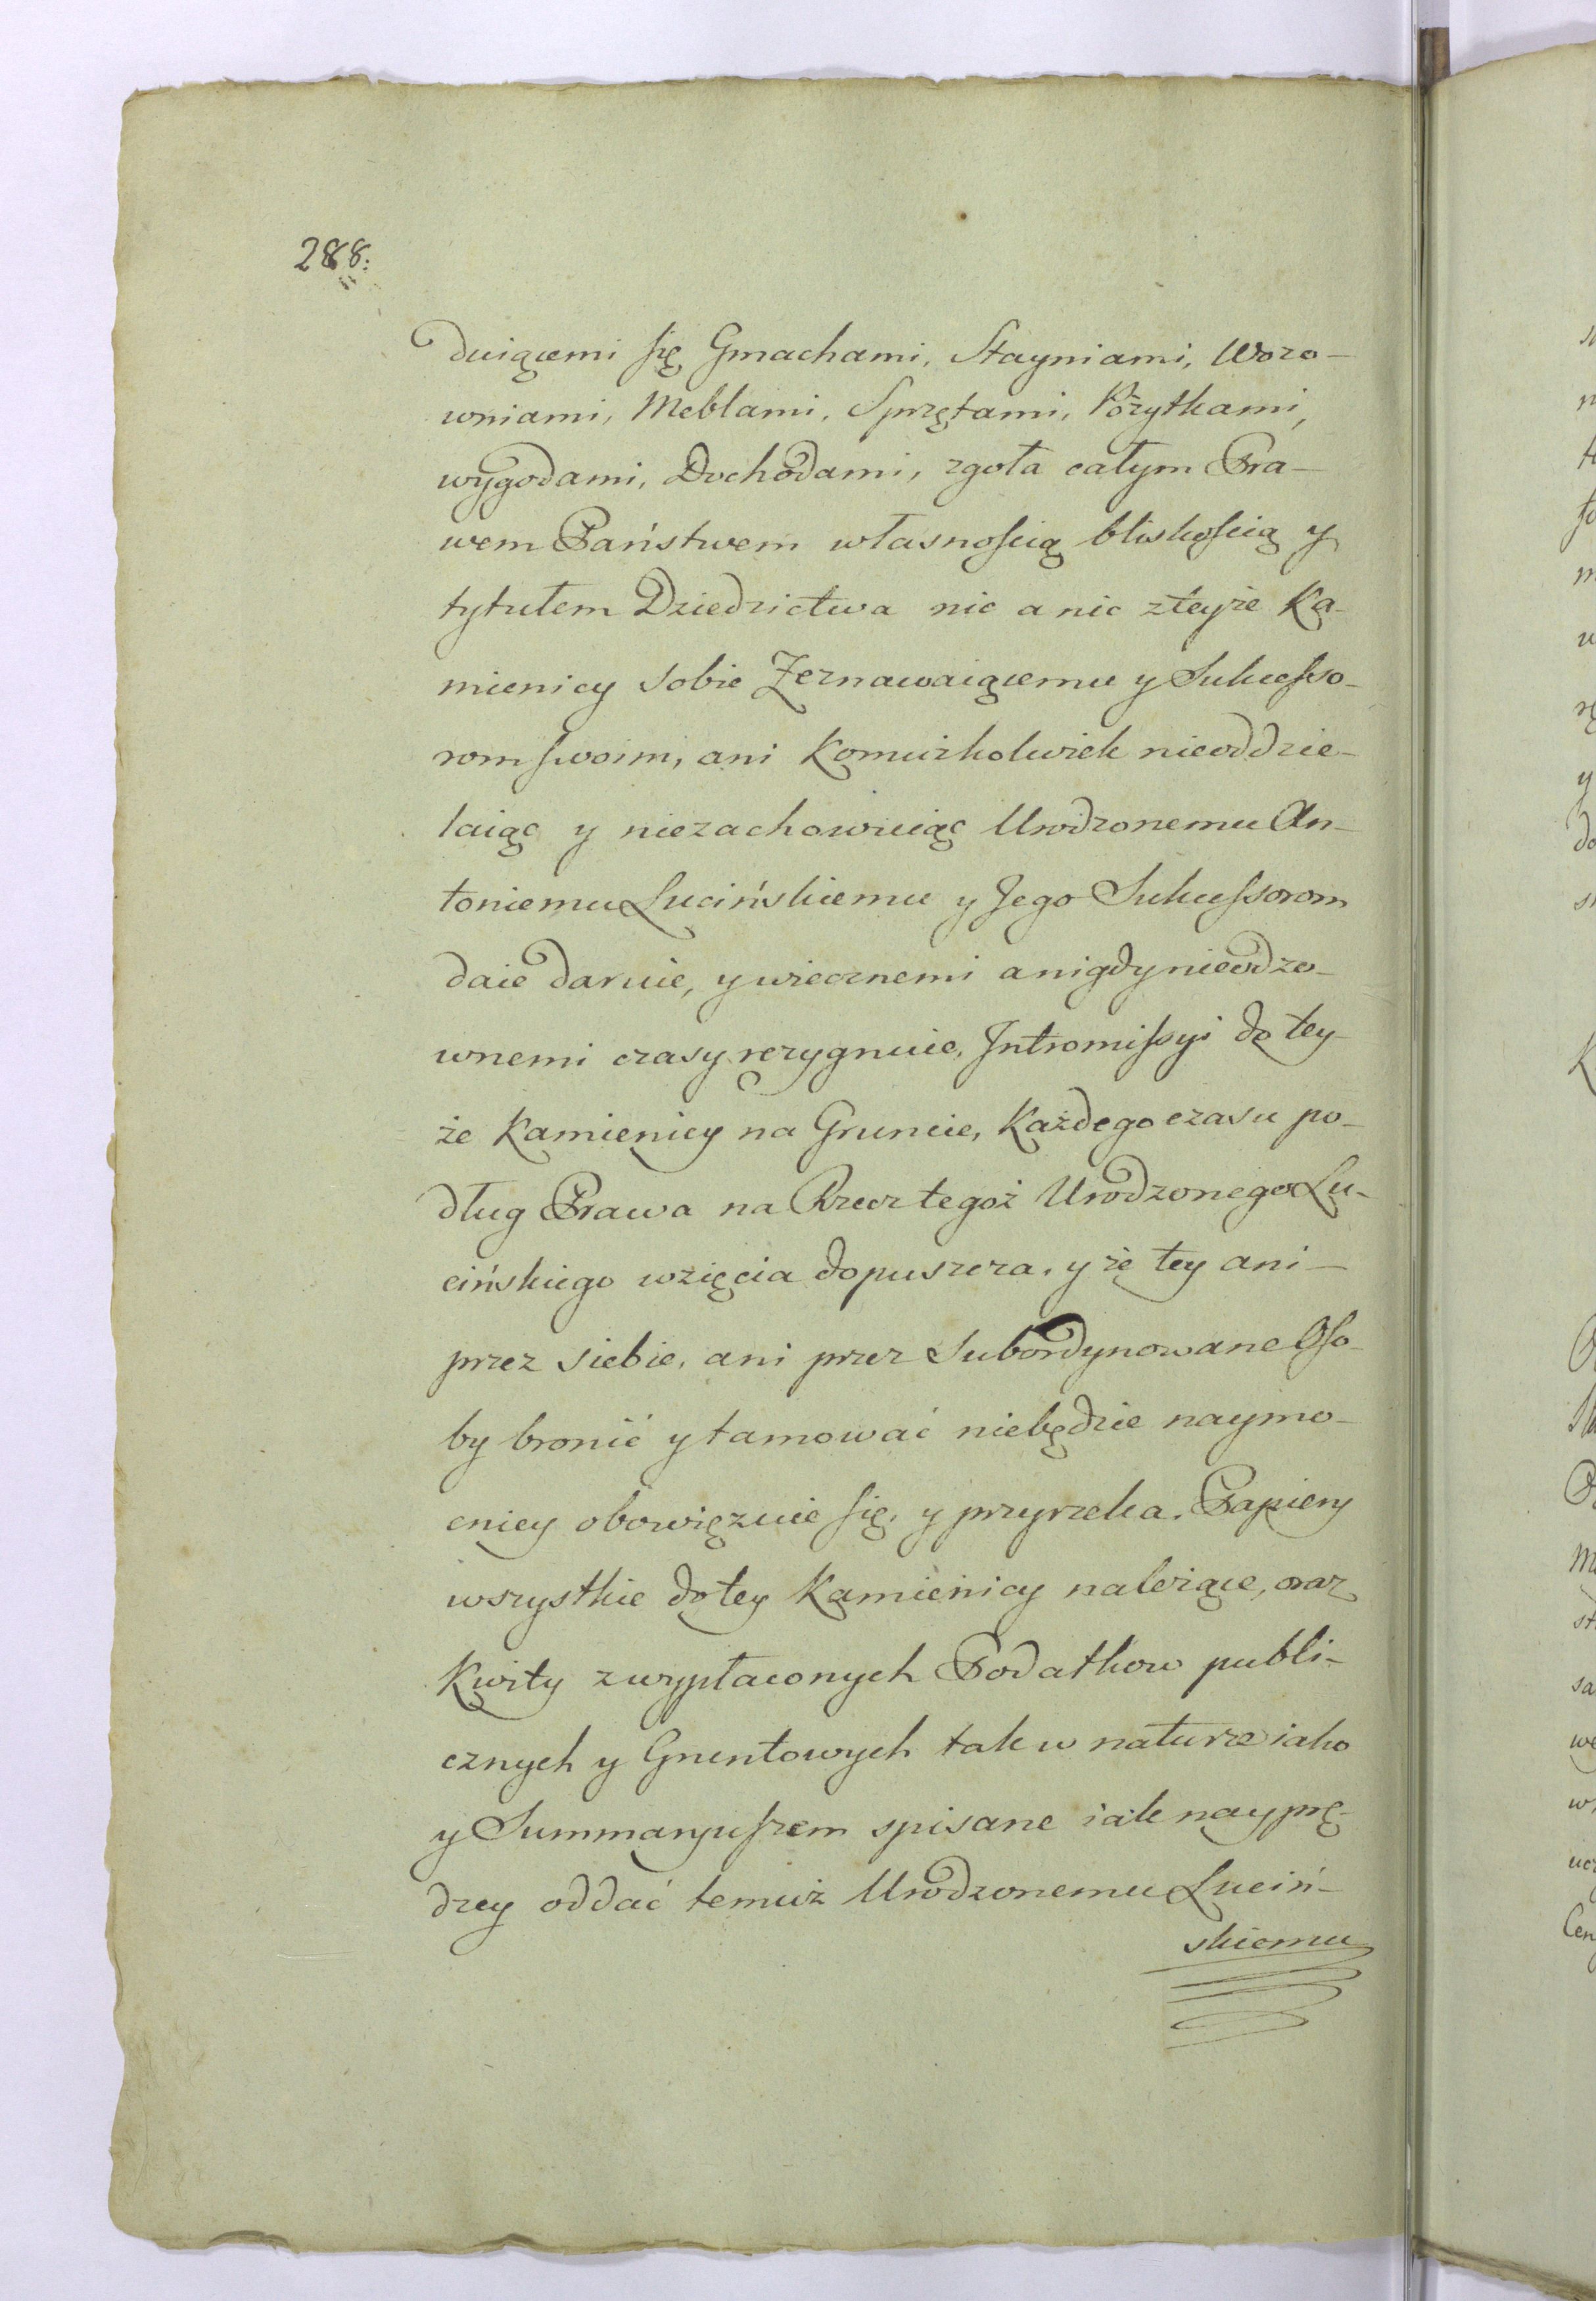 288.
duiącemi się Gmachami, Stayniami, Wozo-
wniami, Meblami, Sprzętami, Pożytkami,
wygodami, Dochodami, zgoła całym Pra-
wem Państwem własnością bliskością y
tytułem Dziedzictwa nic a nic zteyże Ka-
mienicy sobie Zeznawaiącemu y Sukcesso-
rom swoim, ani komużkolwiek nieoddzie-
laiąc y niezachowuiąc Urodzonemu An-
toniemu Lucińskiemu y Jego Sukcessorom
daie daruie, y wiecznemi a nigdy nieodzo-
wnemi czasy rezygnuie, Intromissyi do tey-
że Kamienicy na Gruncie, Każdego czasu po-
dług Prawa na Rzecz tegoż Urodzonego Lu-
cińskiego wzięcia dopuszcza, y że tey ani-
przez siebie, ani przez Subordynowane Oso-
by bronić y tamować niebędzie naymo-
cniey obowięzuie się, y przyrzeka. Papiery
wszystkie do tey Kamienicy należące, oraz
Kwity z wypłaconych Podatkow publi-
cznych y Gruntowych tak w naturze iako
y Summaryuszem spisane iak nayprę-
dzey oddać temuż Urodzonemu Luciń-
skiemu